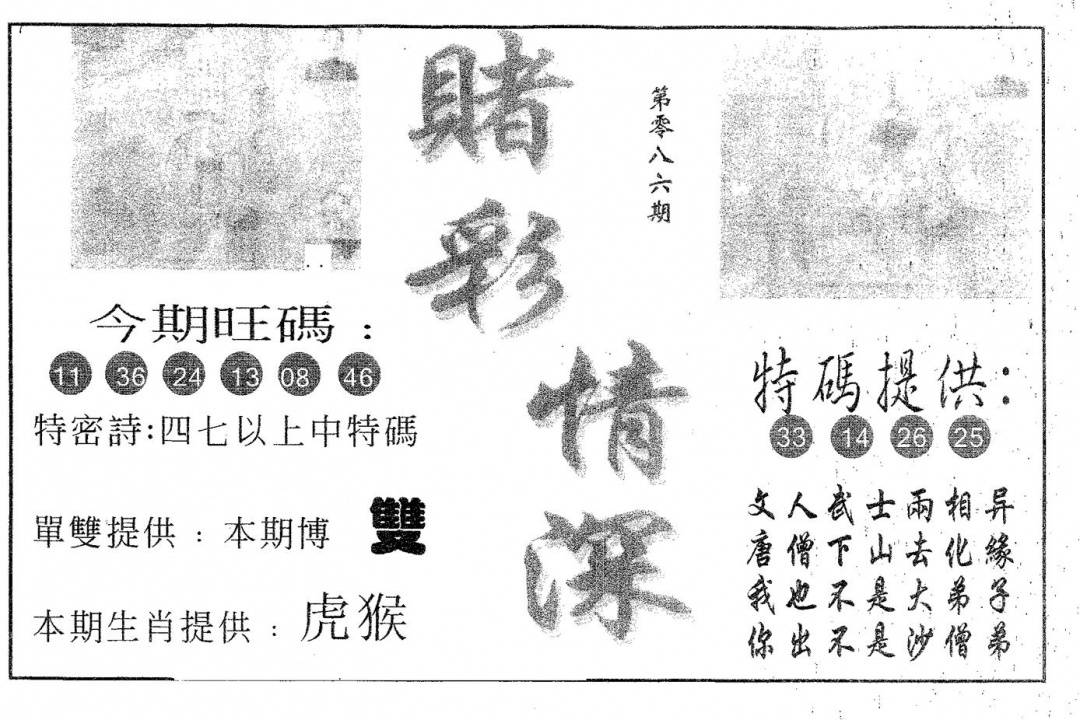 賭彩情深
第零八六期
今期旺碼：
11 36 24 13 08 46
特密詩:四七以上中特碼
單雙提供：本期博 雙
本期生肖提供：虎猴
特碼提供:
33 14 26 25
文人武士兩相异
唐僧下山去化緣
我也不是大弟子
你出不是沙僧弟